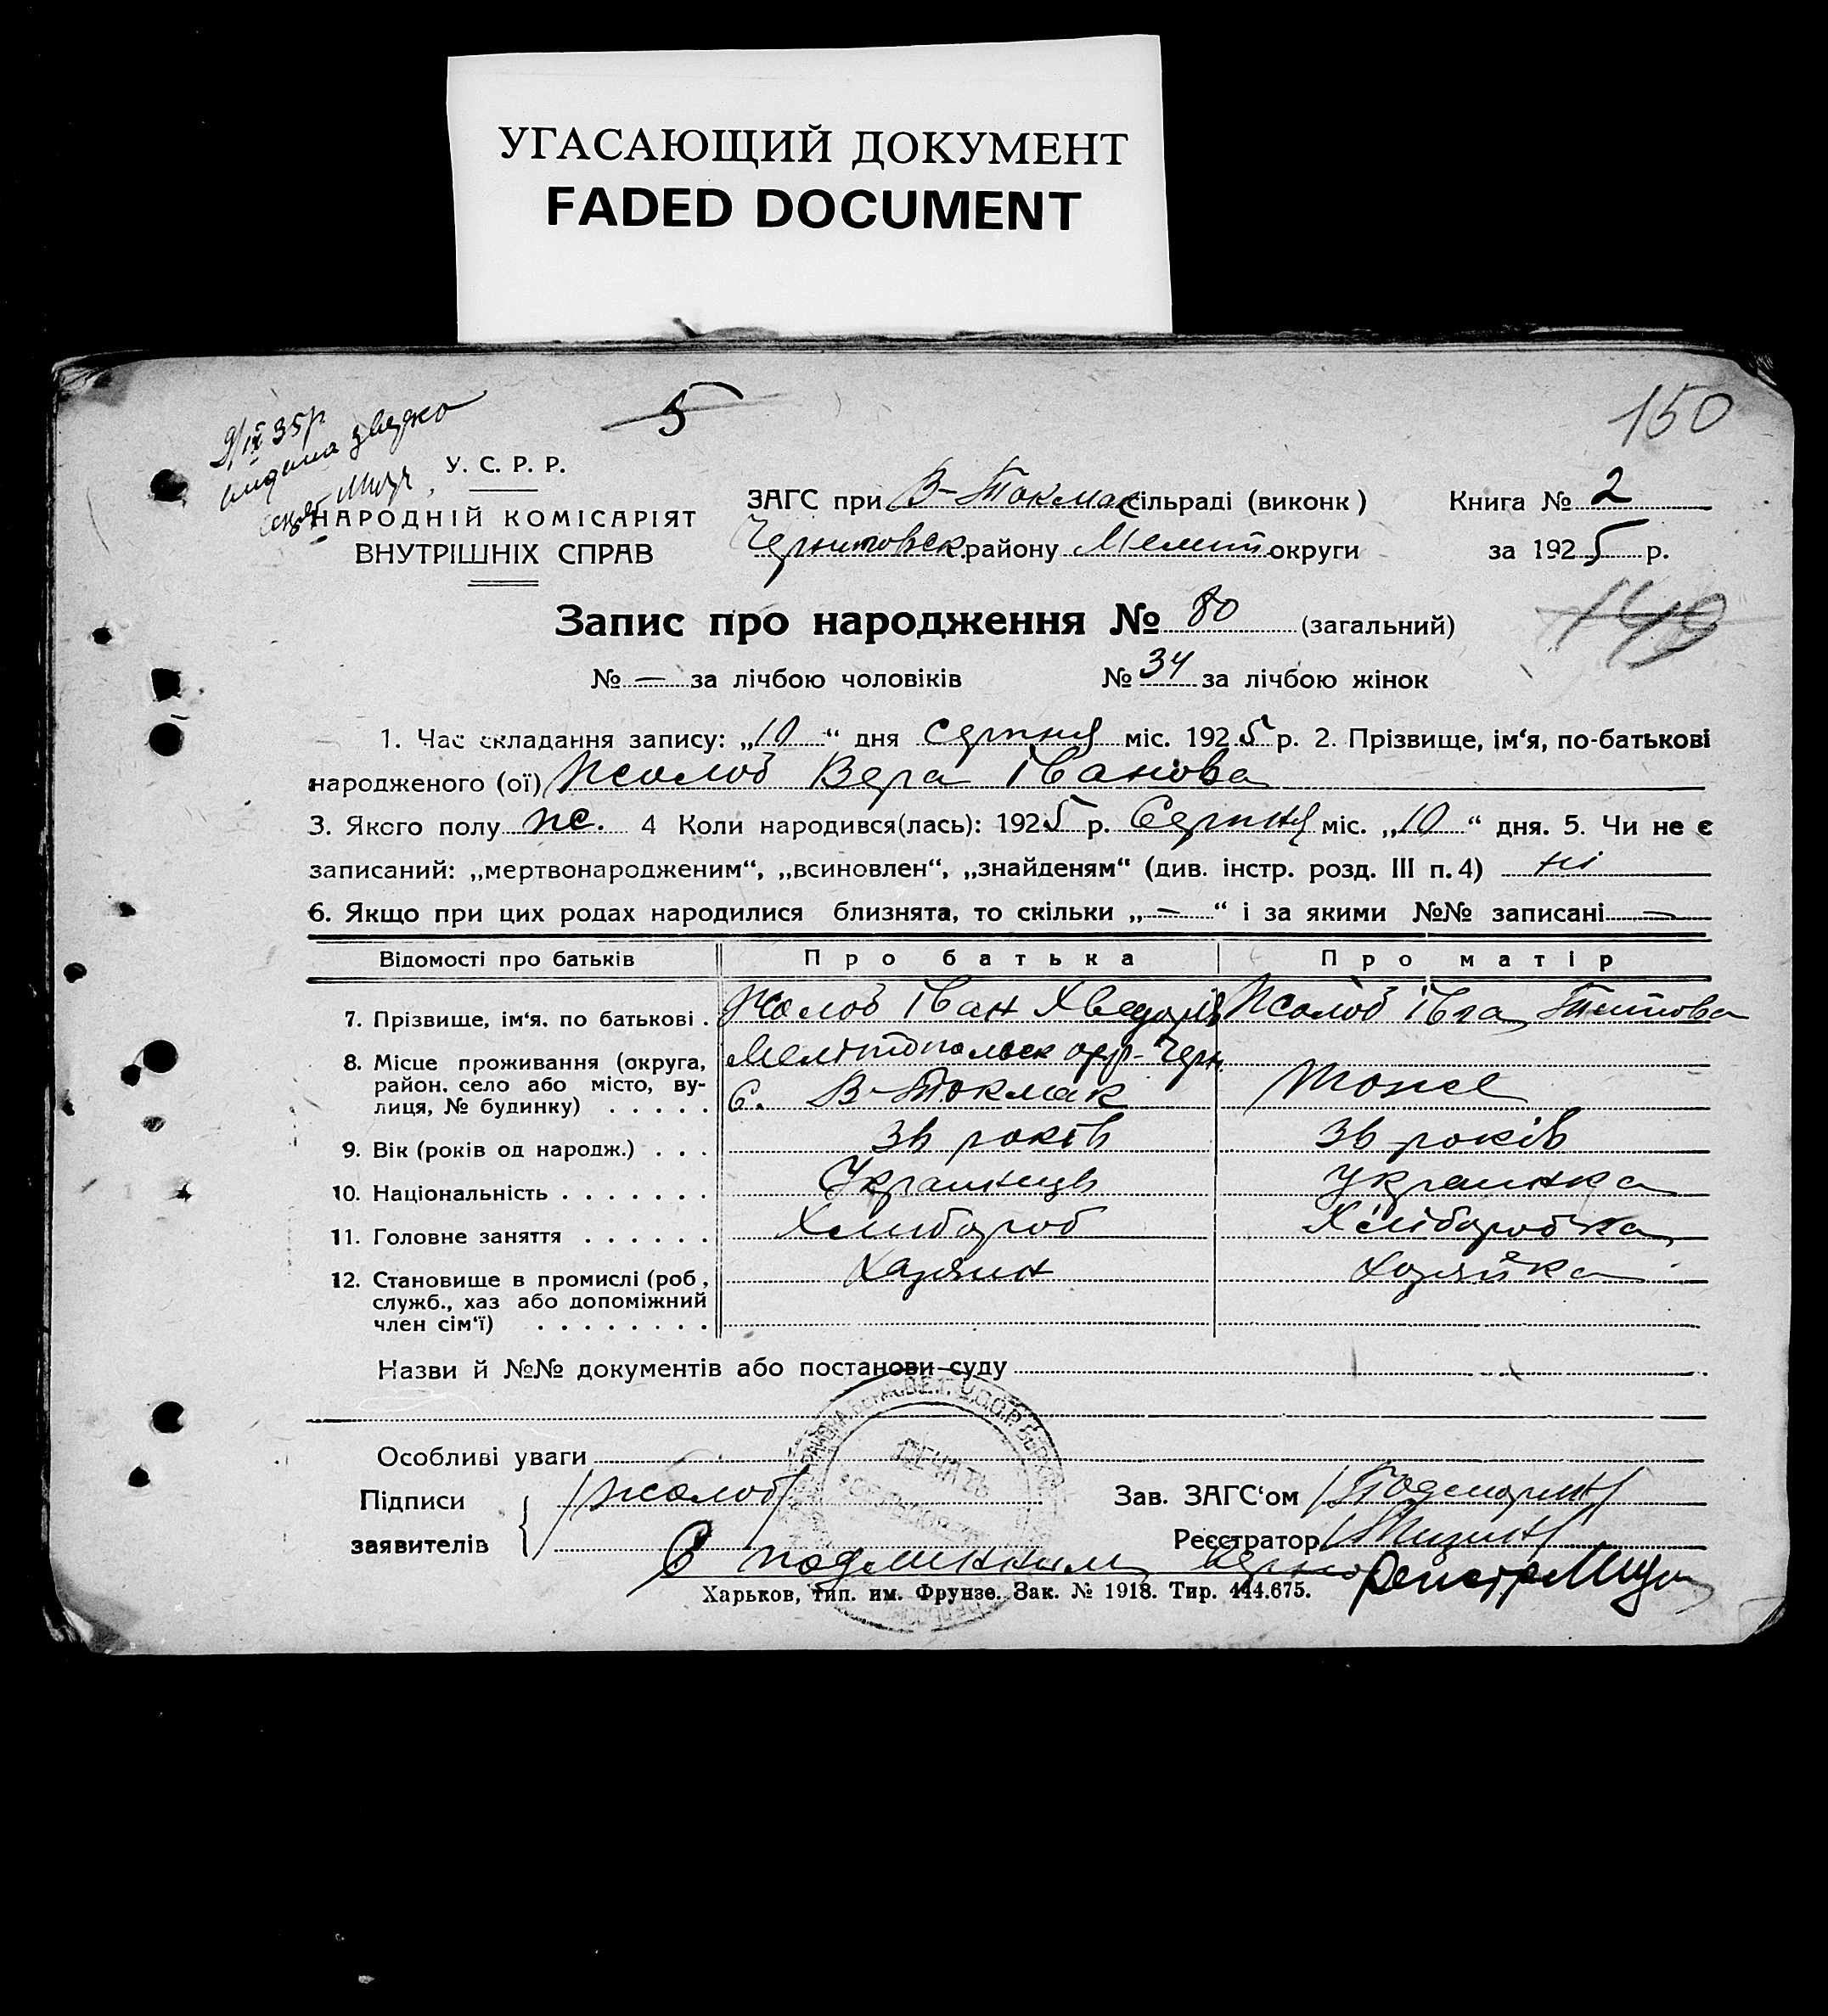 УГАСАЮЩИЙ ДОКУМЕНТ
FADED DOCUMENT
5
150
9/IX 35р
видана
У. С. Р. Р.
НАРОДНІЙ КОМІСАРІЯТ
ВНУТРІШНІХ СПРАВ
ЗАГС при В-Токмак сільраді (виконк)
Книга № 2
району Меліт округи
за 1925 р.
Запис про народження № 80 (загальний)
149
№ — за лічбою чоловіків № 34 за лічбою жінок
1. Час складання запису: „10“ дня Серпня міс. 1925 р. 2. Прізвище, ім‘я, по-батькові
народженого (ої) Жолоб Вера Іванова
3. Якого полу ж. 4 Коли народився(лась): 1925 р. Серпня міс. „10“ дня. 5. Чи не є
записаний: „мертвонародженим“, „всиновлен“, „знайденям“ (див. інстр. розд. III п. 4) ні
6. Якщо при цих родах народилися близнята, то скільки „—“ і за якими №№ записані —
Відомості про батьків Про батька Про матір
7. Прізвище, ім‘я. по батькові . Жолоб Іван Хведорів Жолоб Івга Титова
8. Місце проживання (округа, Мелітопольск окр- Черн
район. село або місто, ву- с. В-Токмак Тоже
лиця, № будинку) . . . . .
9. Вік (років од народж.) . . . 36 років 36 років
10. Національність . . . . . . . Украинць Украинка
11. Головне заняття . . . . . . Хлибороб Хліборобка
12. Становище в промислі (роб, Хазяин Хозяйка
служб., хаз або допоміжний
член сім‘ї) . . . . . . . .
Назви й №№ документів або постанови суду
Особливі уваги
ПЕЧАТЬ
Підписи
заявителів
Жолоб
Зав. ЗАГС‘ом
Реєстратор
С подлинним верно
Харьков, тип. им. Фрунзе. Зак. № 1918. Тир. 444.675.